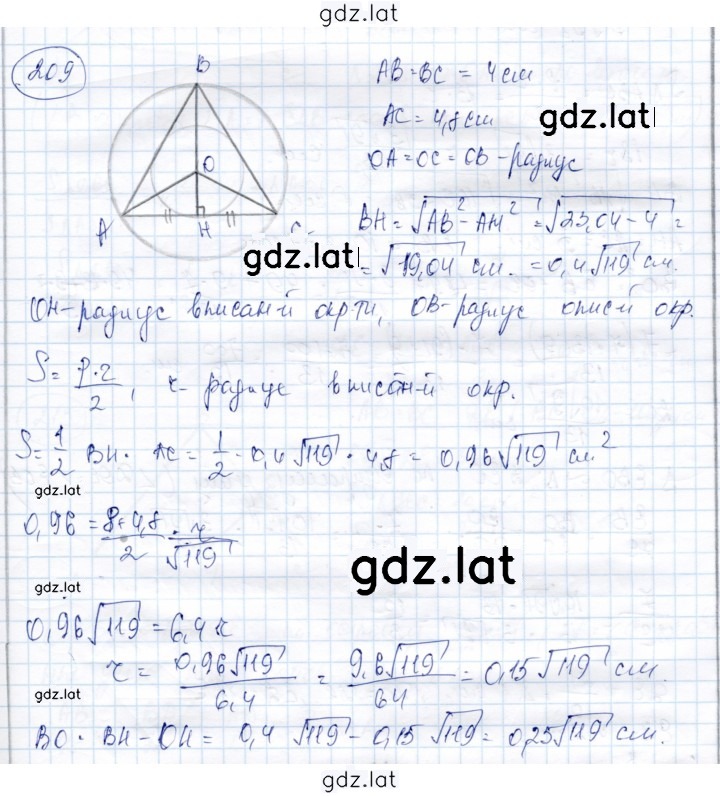 gdz.lat
209
B
O
A
H
C
AB=BC = 4см
AC = 4,8см
gdz.lat
OA=OC=OB-радиус
BH=√AB²-AH² =√23,04-4 =
gdz.lat
=√19,04 см. =0,4√119 см.
OH-радиус вписан-й окр-ти, OB-радиус опис-й окр.
S= P·r/2, r- радиус вписан-й окр.
S=1/2 BH· AC = 1/2·0,4√119·4,8 = 0,96√119 см²
gdz.lat
0,96 = 8+4,8/2 · r/√119
gdz.lat
gdz.lat
0,96√119 = 6,4 r
r = 0,96√119/6,4 = 9,6√119/64 = 0,15√119 см.
gdz.lat
BO = BH-OH = 0,4 √119 - 0,15 √119 = 0,25√119 см.
gdz.lat